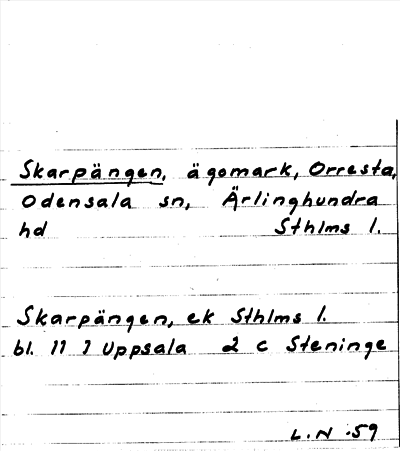 Skarpängen, ägomark, Orresta,
Odensala sn, Ärlinghundra
hd Sthlms l.
Skarpängen, ek Sthlms l.
bl. 11 I Uppsala 2 c Steninge
L.N .59